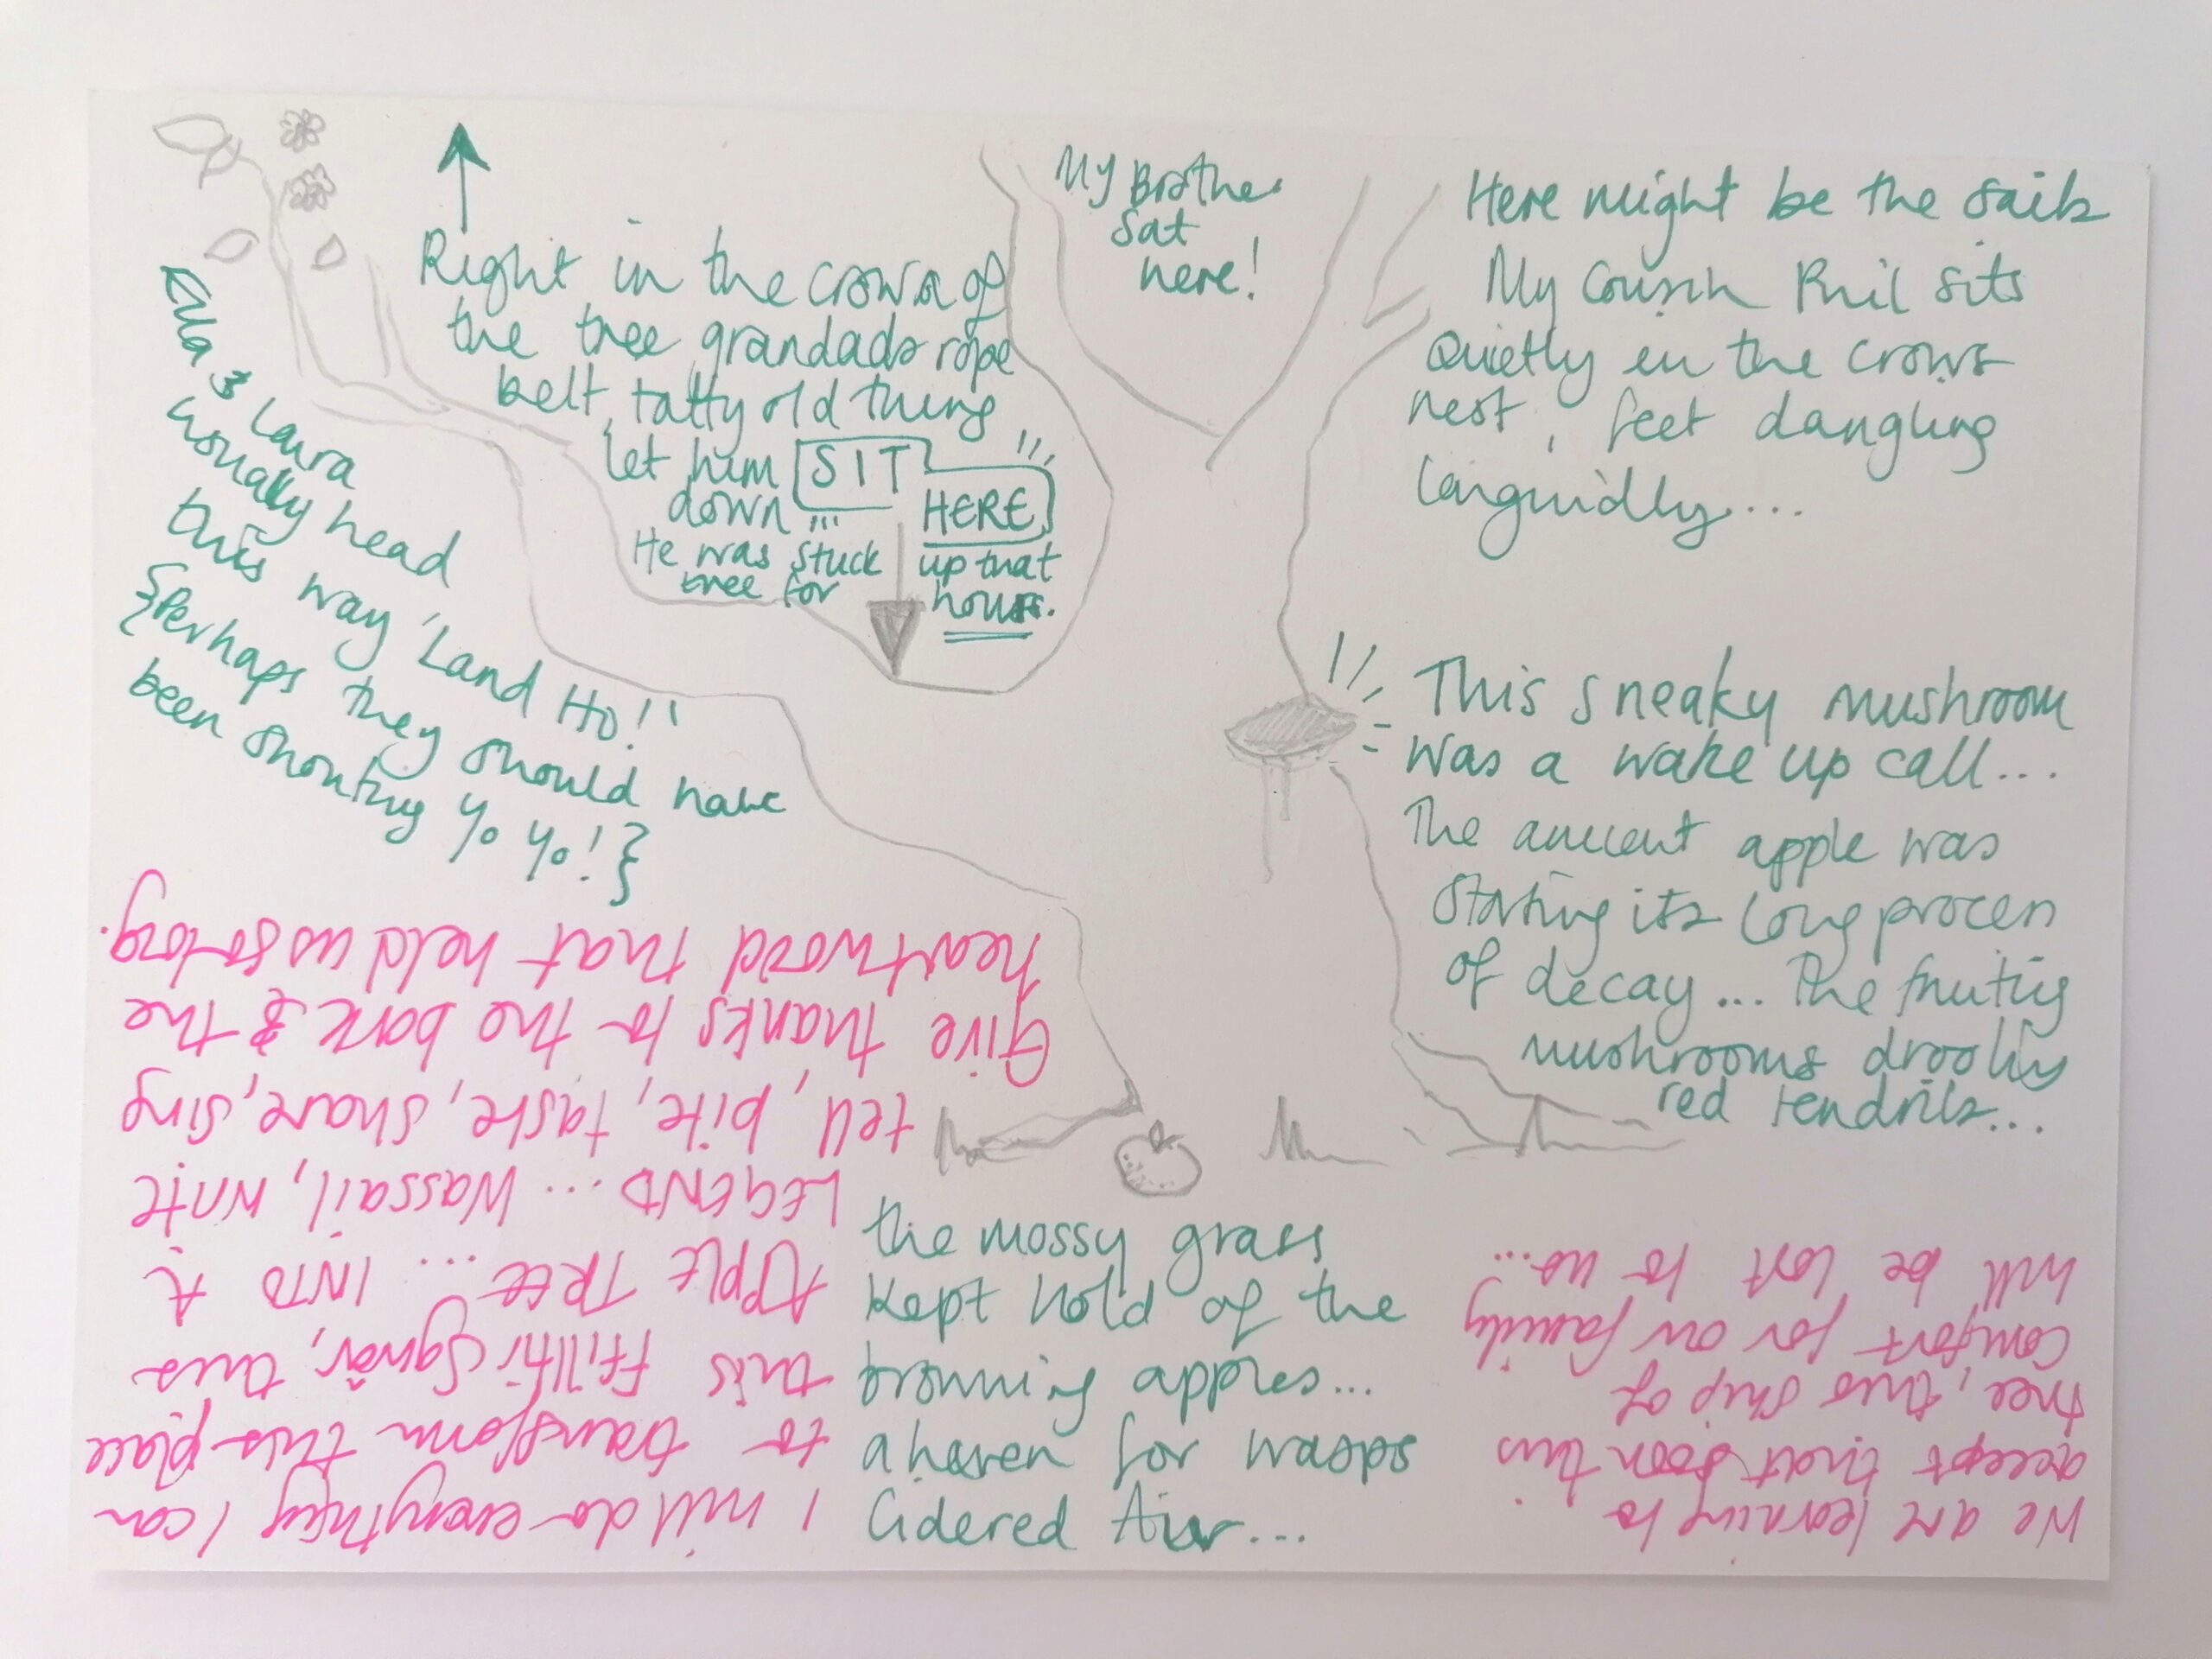 Right in the crown of
the tree grandads rope
belt, tatty old thing
let him SIT
down HERE
He was stuck up that
tree for hours.
My Brother
Sat
here!
Here might be the sails
My Cousin Phil sits
Quietly in the crows
nest, feet dangling
languidly....
Ella & Laura
usually head
this way 'Land Ho!!'
{Perhaps they should have
been shouting Yo Yo!}
This sneaky mushroom
was a wake up call...
The ancient apple was
starting its long process
of decay... The fruiting
mushrooms drooling
red tendrils...
the mossy grass
kept hold of the
browning apples...
a haven for wasps
Cidered Air...
We are learning to
accept that soon this
tree, this ship of
comfort for our family
will be lost to us...
I will do everything I can
to transform this place
this Ffilltir Sgwâr, this
APPLE TREE ... INTO A
LEGEND ... Wassail, write
tell, bite, taste, share, sing
Give thanks to the bark & the
heartwood that held us so long.